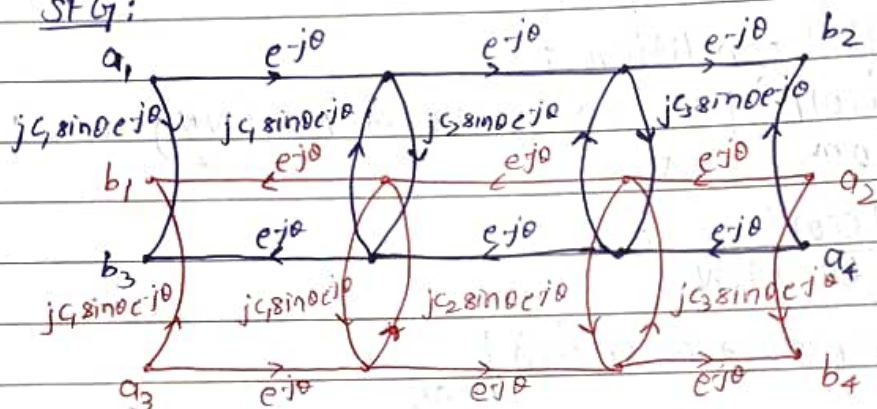 SFG:
a₁ e⁻ʲᶿ e⁻ʲᶿ e⁻ʲᶿ b₂
jC₁sinθe⁻ʲᶿ jC₁sinθe⁻ʲᶿ jC₂sinθe⁻ʲᶿ jC₃sinθe⁻ʲᶿ
b₁ e⁻ʲᶿ e⁻ʲᶿ e⁻ʲᶿ a₂
b₃ e⁻ʲᶿ e⁻ʲᶿ e⁻ʲᶿ a₄
jC₁sinθe⁻ʲᶿ jC₁sinθe⁻ʲᶿ jC₂sinθe⁻ʲᶿ jC₃sinθe⁻ʲᶿ
a₃ e⁻ʲᶿ e⁻ʲᶿ e⁻ʲᶿ b₄